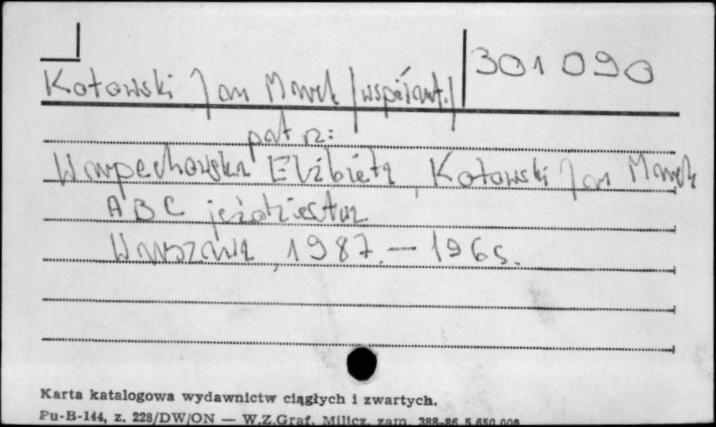 301 090
Kotowski Jan Marek /współaut./
pat rz:
Warpechowska Elżbieta, Kotowski Jan Marek
ABC jeździectwa
Warszawa, 1987. – 196 s.
Karta katalogowa wydawnictw ciągłych i zwartych.
Pu-B-144, z. 228/DW/ON — W.Z.Graf. Milicz, zam. 388-86 5.650.000